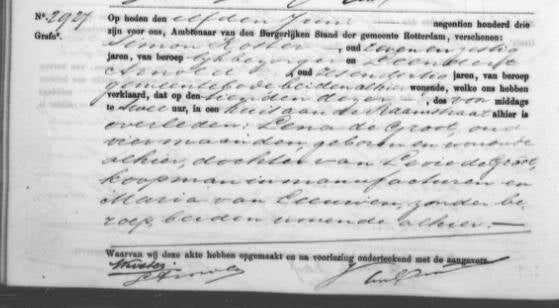 No. 2927. Op heden den elfden Juni negentien honderd drie
Grefs. zijn voor ons, Ambtenaar van den Burgerlijken Stand der gemeente Rotterdam, verschenen:
Simon Koster, oud zevenenzestig
jaren, van beroep lijkbezorger en Leendert
Arnold, oud zesendertig jaren, van beroep
gemeentebode beiden alhier wonende, welke ons hebben
verklaard, dat op den tienden dezer, des voor middags
te twee uur, in een huis aan de Raamstraat alhier is
overleden: Lena de Groot, oud
vier maanden, geboren en wonende
alhier, dochter van Levie de Groot,
koopman in manufacturen en
Maria van Leeuwen, zonder be-
roep, beiden wonende alhier.
Waarvan wij deze akte hebben opgemaakt en na voorlezing onderteekend met de aangevers.